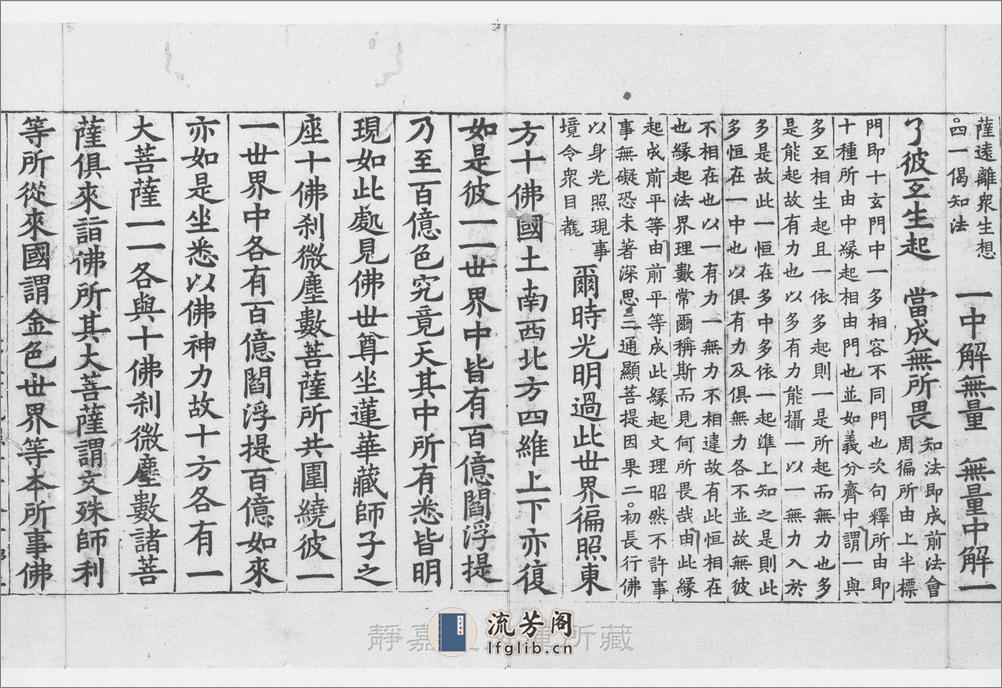 薩遠離衆生想
四一偈知法
一中解無量　無量中解一
了彼互生起　當成無所畏
知法即成前法會
周徧所由上半標
門即十玄門中一多相容不同門也次句釋所由即
十種所由中緣起相由門也並如義分齊中謂一與
多互相生起且一依多起則一是所起而無力也多
是能起故有力也以多有力能攝一以一無力入於
多是故此一恒在多中多依一起準上知之是則此
多恒在一中也以俱有力及俱無力各不並故無彼
不相在也以一有力一無力不相違故有此恒相在
也緣起法界理數常爾稱斯而見何所畏哉由此緣
起成前平等由前平等成此緣起文理昭然不許事
事無礙恐未著深思二通顯菩提因果二初長行佛
以身光照現事
境令衆目覩
爾時光明過此世界徧照東
方十佛國土南西北方四維上下亦復
如是彼一一世界中皆有百億閻浮提
乃至百億色究竟天其中所有悉皆明
現如此處見佛世尊坐蓮華藏師子之
座十佛刹微塵數菩薩所共圍繞彼一
一世界中各有百億閻浮提百億如來
亦如是坐悉以佛神力故十方各有一
大菩薩一一各與十佛刹微塵數諸菩
薩俱來詣佛所其大菩薩謂文殊師利
等所從來國謂金色世界等本所事佛
靜嘉
所藏
流芳阁
lfglib.cn